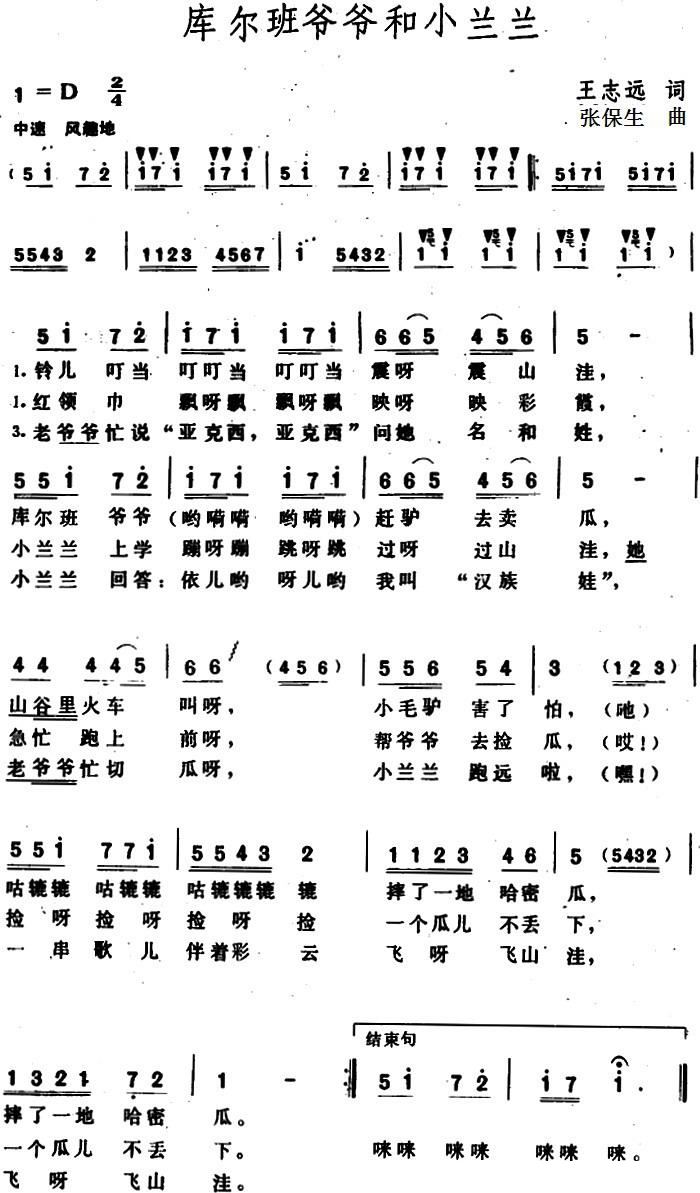 库尔班爷爷和小兰兰
1=D 2/4
王志远 词
中速 风趣地
张保生 曲
(5i 72 | i7i i7i | 5i 72 | i7i i7i :| 5i7i 5i7i
5543 2 | 1123 4567 | i 5432 | 5 1i 5 1i | 5 1i 5 1i )
5i 72 | i7i i7i | 665 456 | 5 - |
1.铃儿 叮当 叮叮当 叮叮当 震呀 震山 洼,
1.红领 巾 飘呀飘 飘呀飘 映呀 映彩 霞,
3.老爷爷忙说“亚克西,亚克西”问她 名和 姓,
55i 72 | i7i i7i | 665 456 | 5 - |
库尔班 爷爷 (哟嗬嗬 哟嗬嗬) 赶驴 去卖 瓜,
小兰兰 上学 蹦呀蹦 跳呀跳 过呀 过山 洼,她
小兰兰 回答:依儿哟 呀儿哟 我叫 “汉族 娃”,
44 445 | 66 (456) | 556 54 | 3 (123) |
山谷里火车 叫呀, 小毛驴 害了 怕,(吔)
急忙 跑上 前呀, 帮爷爷 去捡 瓜,(哎!)
老爷爷忙切 瓜呀, 小兰兰 跑远 啦,(嘿!)
55i 77i | 5543 2 | 1123 46 | 5 (5432) |
咕辘辘 咕辘辘 咕辘辘辘 辘 摔了一地 哈密 瓜,
捡呀 捡呀 捡呀 捡 一个瓜儿 不丢 下,
一串 歌儿 伴着彩 云 飞呀 飞山 洼,
结束句
1321 72 | 1 - :| 5i 72 | i7 i. ‖
摔了一地 哈密 瓜。
一个瓜儿 不丢 下。 咪咪 咪咪 咪咪 咪。
飞呀 飞山 洼。